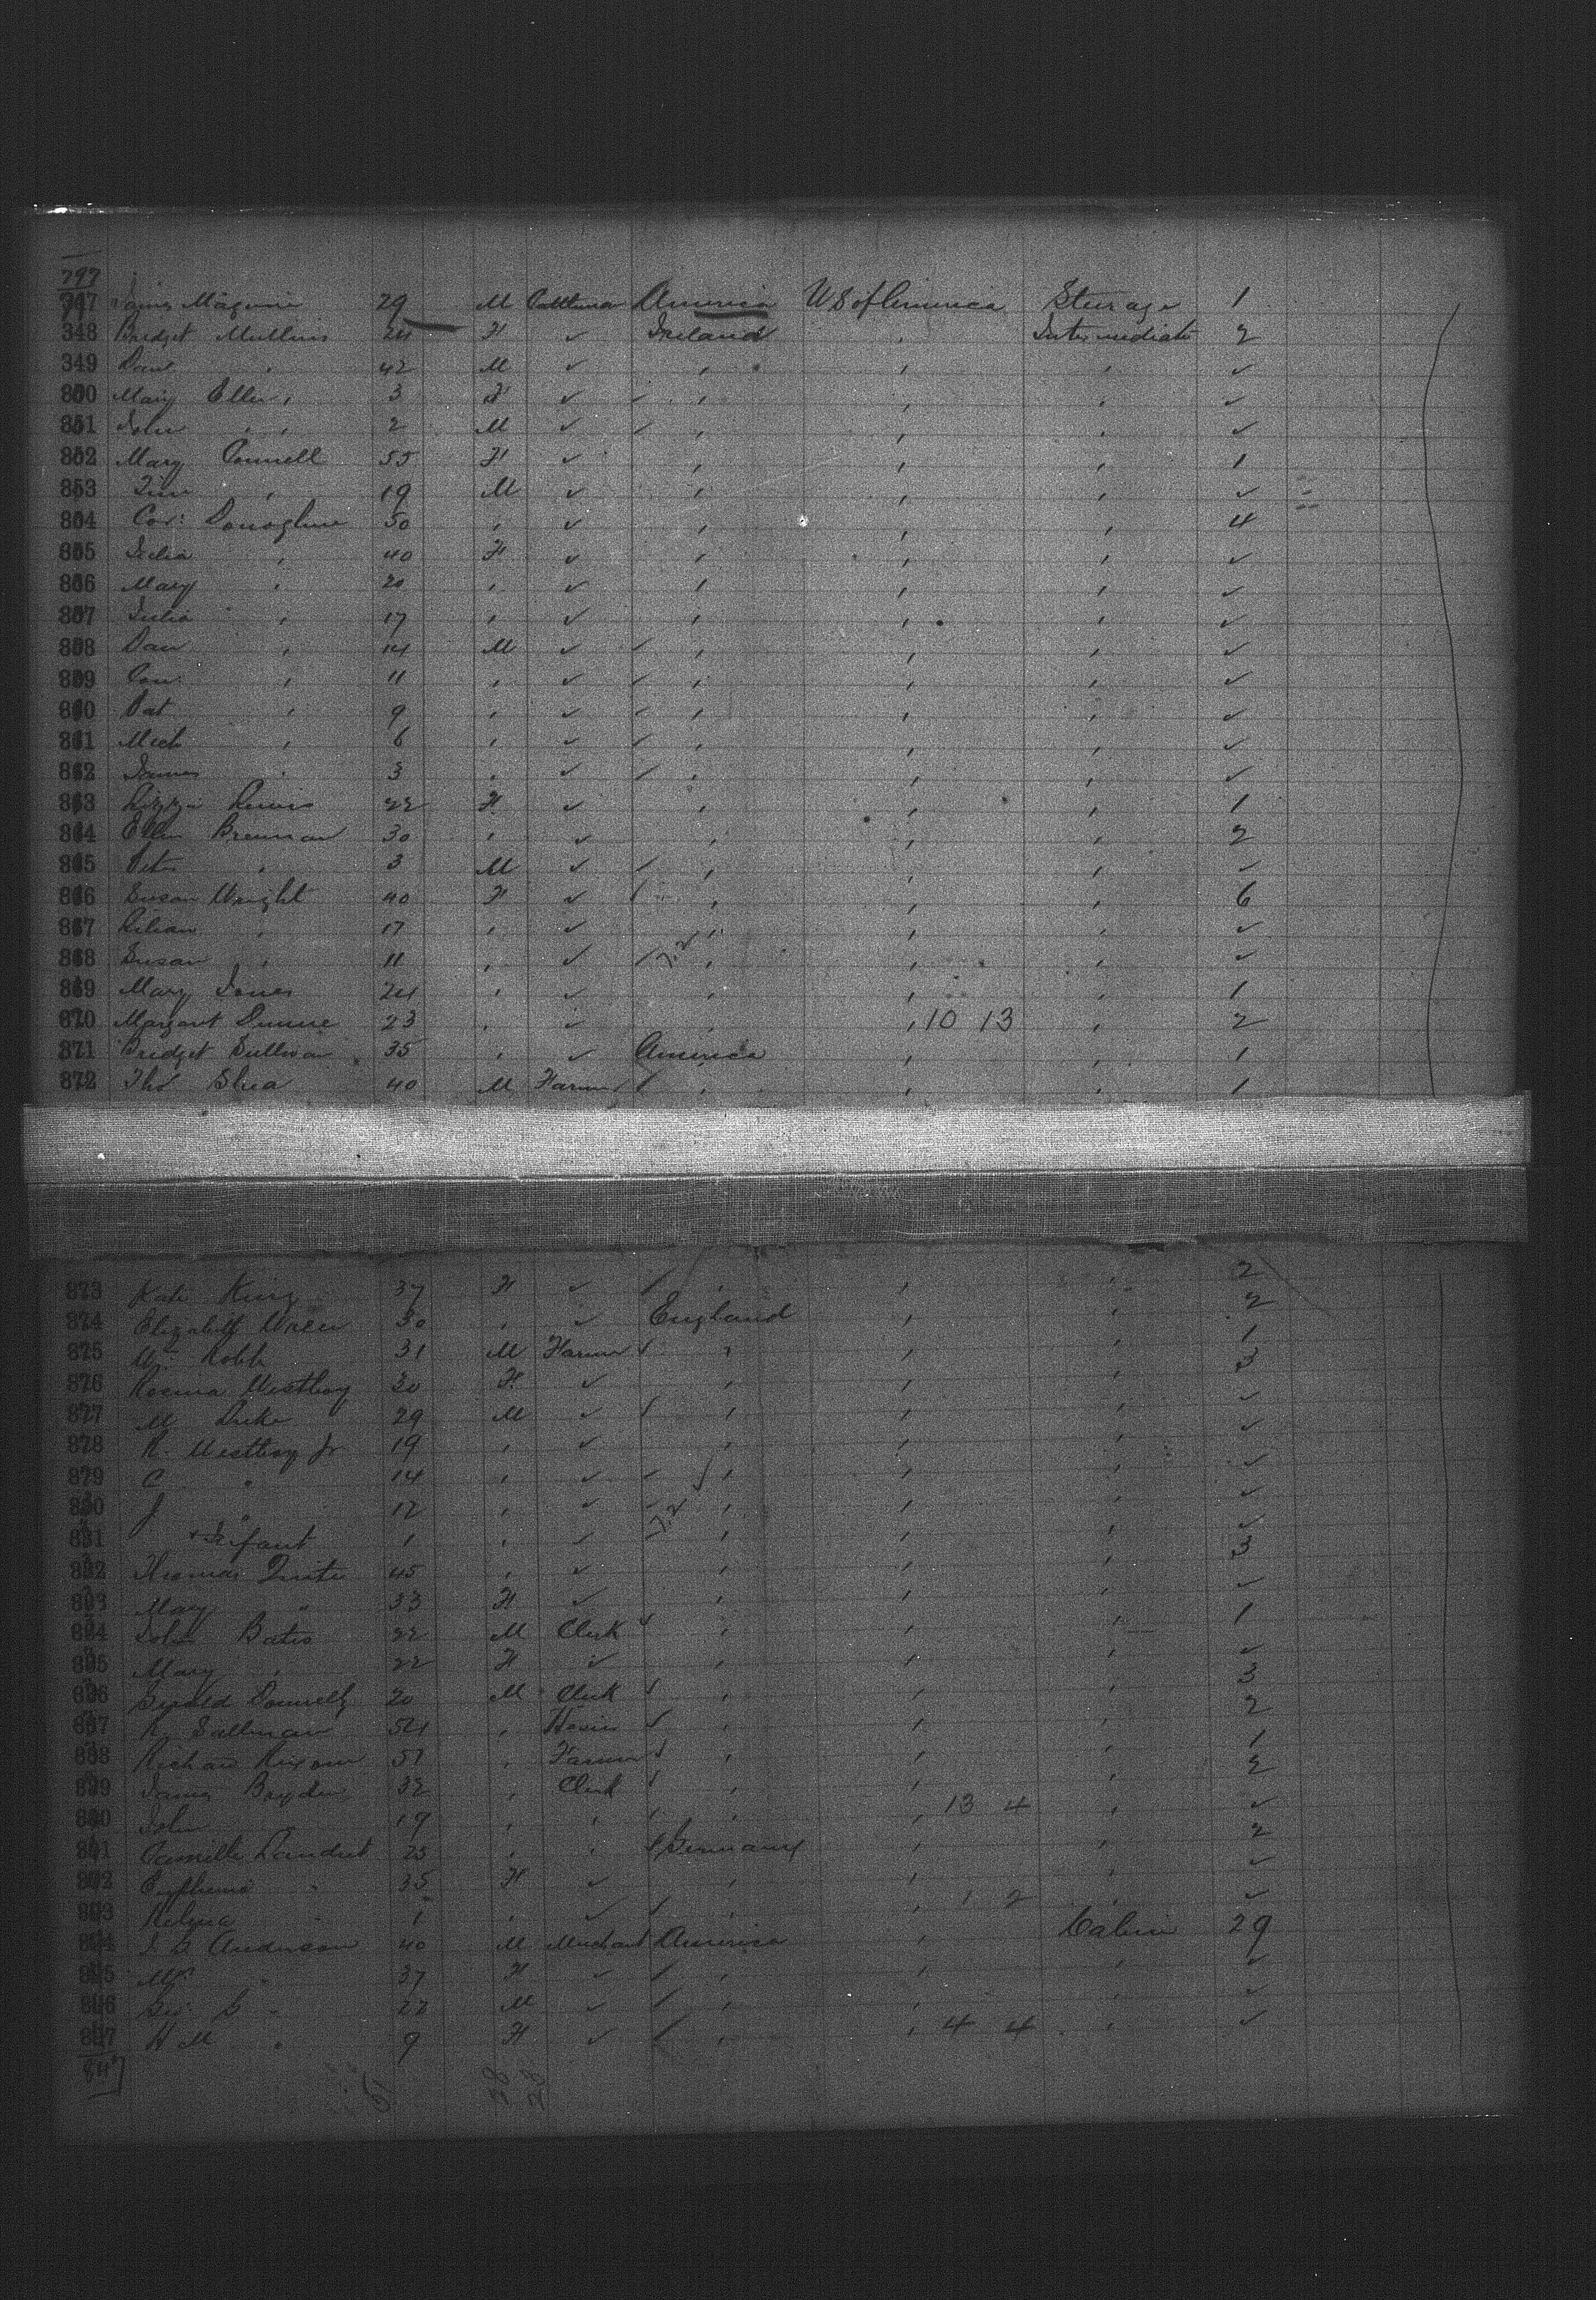 797
847 James Maguire 29 M Cattleman America U S of America Steerage 1
348 Bridget Mullins 24 F ✓ Ireland , Intermediate 2
349 Dan , 42 M ✓ , , , ✓
850 Mary Ellen , 3 F ✓ ✓ , , , ✓
851 John , , 2 M ✓ ✓ , , , ✓
852 Mary Connell 55 F ✓ , , , 1
853 Tim , 19 M ✓ , , , ✓
854 Cor: Donoghue 50 , ✓ , , , 4
855 Julia , 40 F ✓ , , , ✓
856 Mary , 20 , ✓ , , , ✓
857 Julia , 17 , ✓ , , , ✓
858 Dan , 14 M ✓ ✓ , , , ✓
859 Con: , 11 , ✓ ✓ , , , ✓
860 Pat , 9 , ✓ ✓ , , , ✓
861 Mich , 6 , ✓ ✓ , , , ✓
862 James , 3 , ✓ ✓ , , , ✓
863 Lizzie Lewis 22 F ✓ , , , 1
864 Ellen Brennan 30 , ✓ , , , 2
865 Peter , 3 M ✓ ✓ , , , ✓
866 Susan Wright 40 F ✓ ✓ , , , 6
867 Lilian , 17 , ✓ , , , ✓
868 Susan , 11 , ✓ ✓ , , , ✓
869 Mary Jones 24 , ✓ , , , 1
870 Margaret Dunne 23 , ✓ , , 10 13 , 2
871 Bridget Sullivan 35 , ✓ America , , 1
872 Thos Shea 40 M Farmer ✓ , , , 1
873 Kate King 37 F ✓ ✓ , , , 2
874 Elizabeth 30 , ✓ England , , 2
875 Wm: Robb 31 M Farmer ✓ , , , 1
876 Rosina Westboy 30 F ✓ , , , 3
877 M Duke 29 M ✓ ✓ , , , ✓
878 R. Westboy Jr 19 , ✓ , , , ✓
879 C " 14 , ✓ ✓ , , , ✓
880 J " 12 , ✓ ✓ , , , ✓
881 + Infant 1 , ✓ , , , ✓
882 Thomas 45 , ✓ , , , 3
883 Mary " 33 F ✓ , , , ✓
884 John Bates 22 M Clerk ✓ , , , 1
885 Mary , 22 F ✓ , , , ✓
886 Gerald Donnelly 20 M Clerk ✓ , , , 3
887 R. Sallman 54 , ✓ , , , 2
888 Richard 51 , Farmer ✓ , , , 1
889 James Boyden 32 , Clerk ✓ , , , 2
890 John , 19 , , ✓ , , 13 4 , ✓
891 Camille Landret 25 , , ✓ Germany , , 2
892 " 35 F ✓ , , , ✓
893 " 1 , ✓ ✓ , , 1 2 , ✓
894 J. G. Anderson 40 M Merchant America , Cabin 29
895 Mrs " 37 F ✓ ✓ , , , ✓
896 Geo: G " 22 M ✓ ✓ , , , ✓
897 H M " 9 F ✓ ✓ , , 4 4 , ✓
847